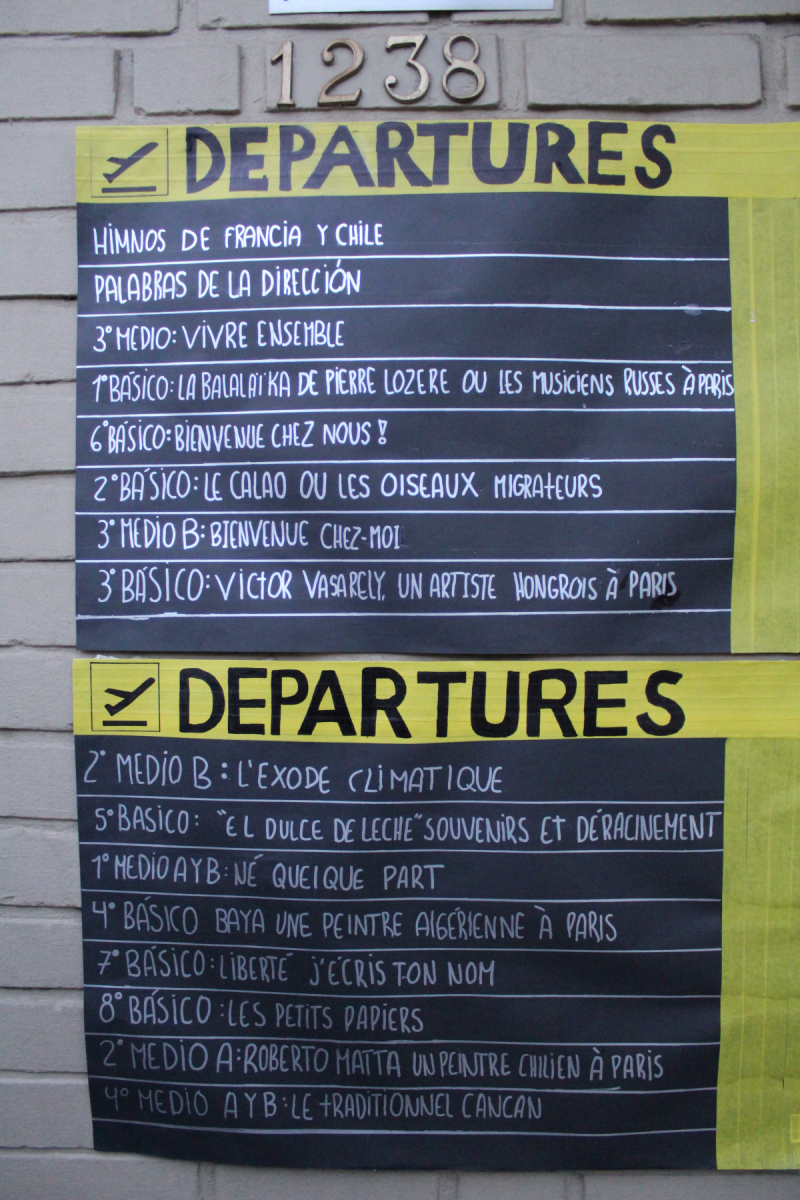 1238
DEPARTURES
HIMNOS DE FRANCIA Y CHILE
PALABRAS DE LA DIRECCIÓN
3° MEDIO: VIVRE ENSEMBLE
1° BÁSICO: LA BALALAÏKA DE PIERRE LOZERE OU LES MUSICIENS RUSSES À PARIS
6° BÁSICO: BIENVENUE CHEZ NOUS !
2° BÁSICO: LE CALAO OU LES OISEAUX MIGRATEURS
3° MEDIO B: BIENVENUE CHEZ-MOI
3° BÁSICO: VICTOR VASARELY, UN ARTISTE HONGROIS À PARIS
DEPARTURES
2° MEDIO B: L'EXODE CLIMATIQUE
5° BASICO: "EL DULCE DE LECHE" SOUVENIRS ET DÉRACINEMENT
1° MEDIO A Y B: NÉ QUELQUE PART
4° BÁSICO BAYA UNE PEINTRE ALGÉRIENNE À PARIS
7° BÁSICO: LIBERTÉ J'ÉCRIS TON NOM
8° BÁSICO: LES PETITS PAPIERS
2° MEDIO A: ROBERTO MATTA UN PEINTRE CHILIEN À PARIS
4° MEDIO A Y B: LE TRADITIONNEL CANCAN